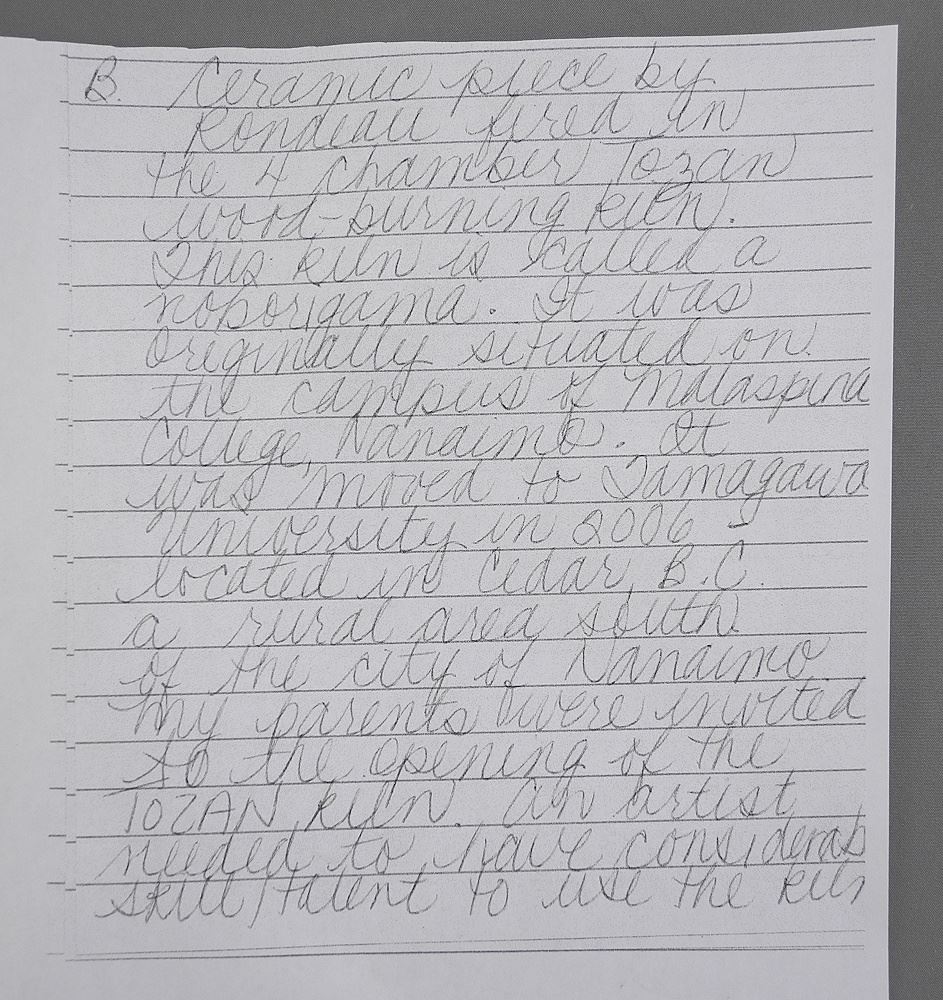 B. Ceramic piece by
Rondeau fired in
the 4 chamber Tozan
wood-burning kiln.
This kiln is called a
noborigama. It was
originally situated on
the campus of Malaspina
College, Nanaimo. It
was moved to Tamagawa
University in 2006 -
located in Cedar, B.C.
a rural area south
of the city of Nanaimo
My parents were invited
to the opening of the
TOZAN kiln. An artist
needed to have considerab
skill/talent to use the kiln